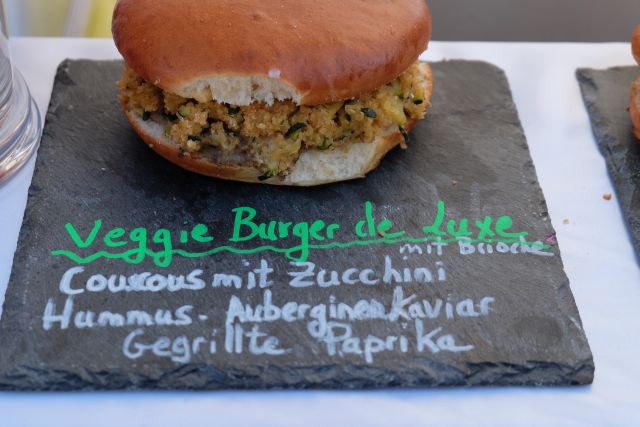 Veggie Burger de Luxe
mit Brioche
Couscous mit Zucchini
Hummus - Auberginenkaviar
Gegrillte Paprika